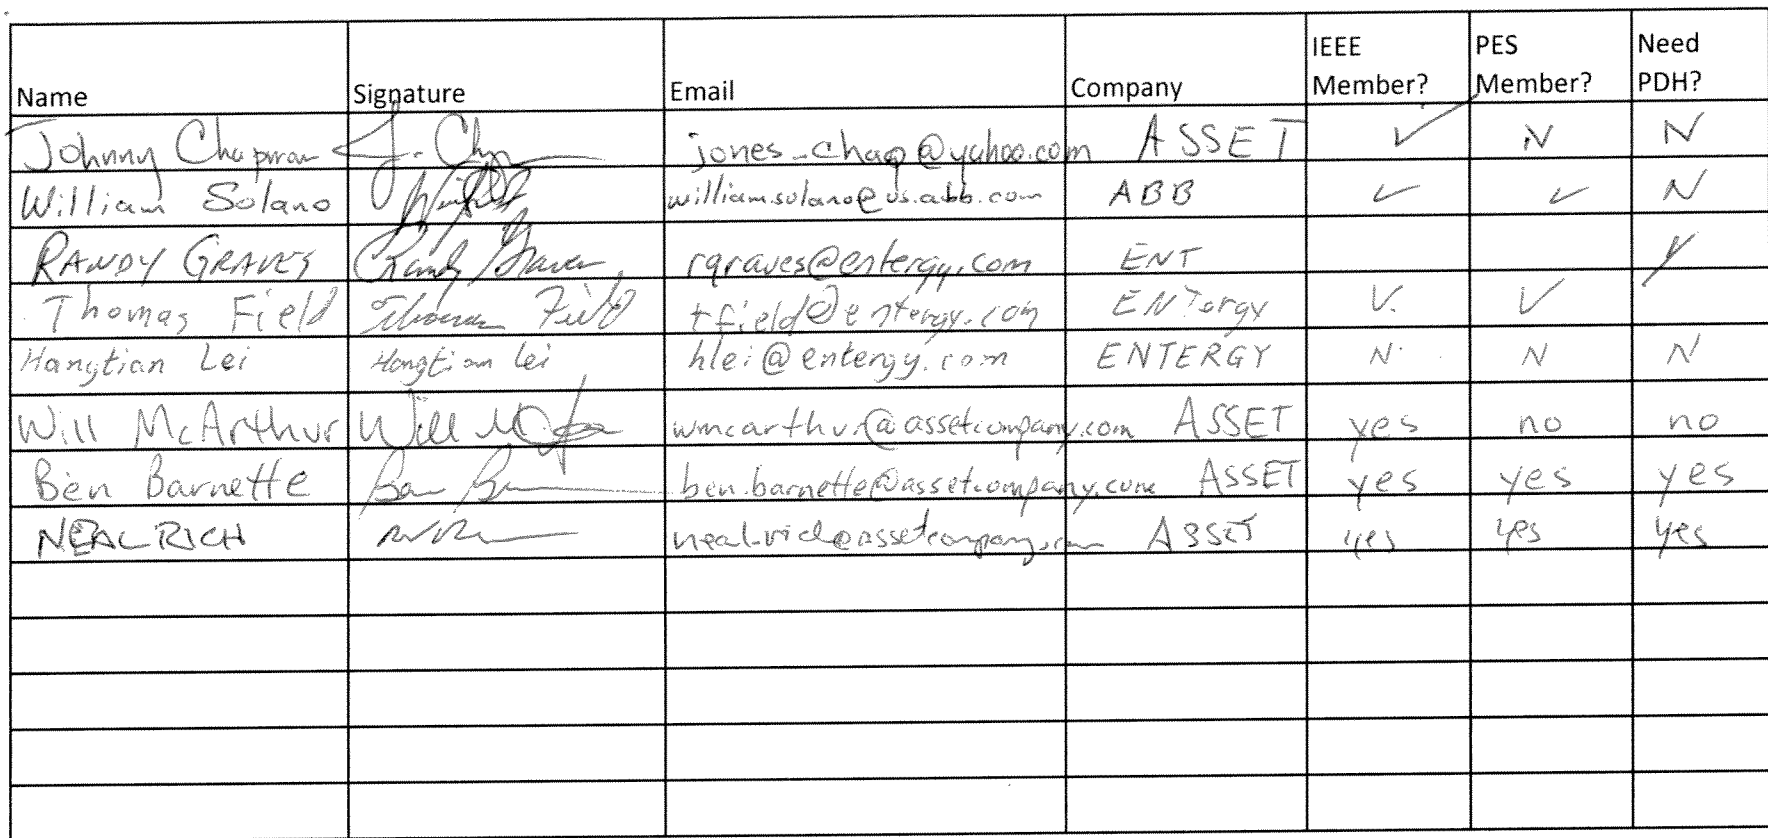 Name Signature Email Company IEEE Member? PES Member? Need PDH?
Johnny Chapman J. Chap jones_chap@yahoo.com ASSET ✓ N N
William Solano william.solano@us.abb.com ABB ✓ ✓ N
RANDY GRAVES Randy Graves rgraves@entergy.com ENT Y
Thomas Field Thomas Field tfield@entergy.com ENTergy ✓ ✓
Hangtian Lei Hangtian Lei hlei@entergy.com ENTERGY N N N
Will McArthur Will wmcarthur@assetcompany.com ASSET yes no no
Ben Barnette Ben ben.barnette@assetcompany.com ASSET yes yes yes
NEAL RICH neal.rich@assetcompany.com ASSET yes yes yes